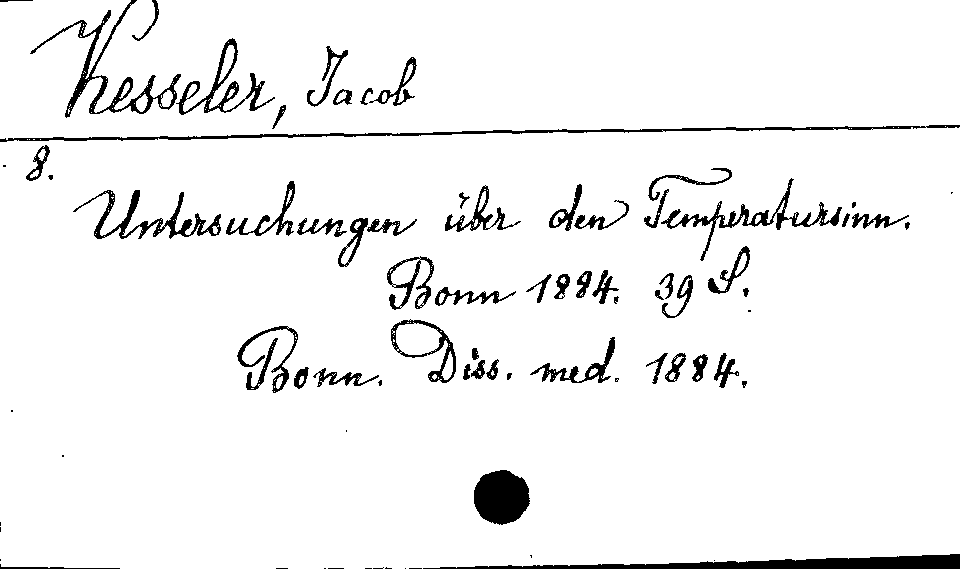 Kesseler, Jacob
8.
Untersuchungen über den Temperatursinn.
Bonn 1884. 39 S.
Bonn. Diss. med. 1884.